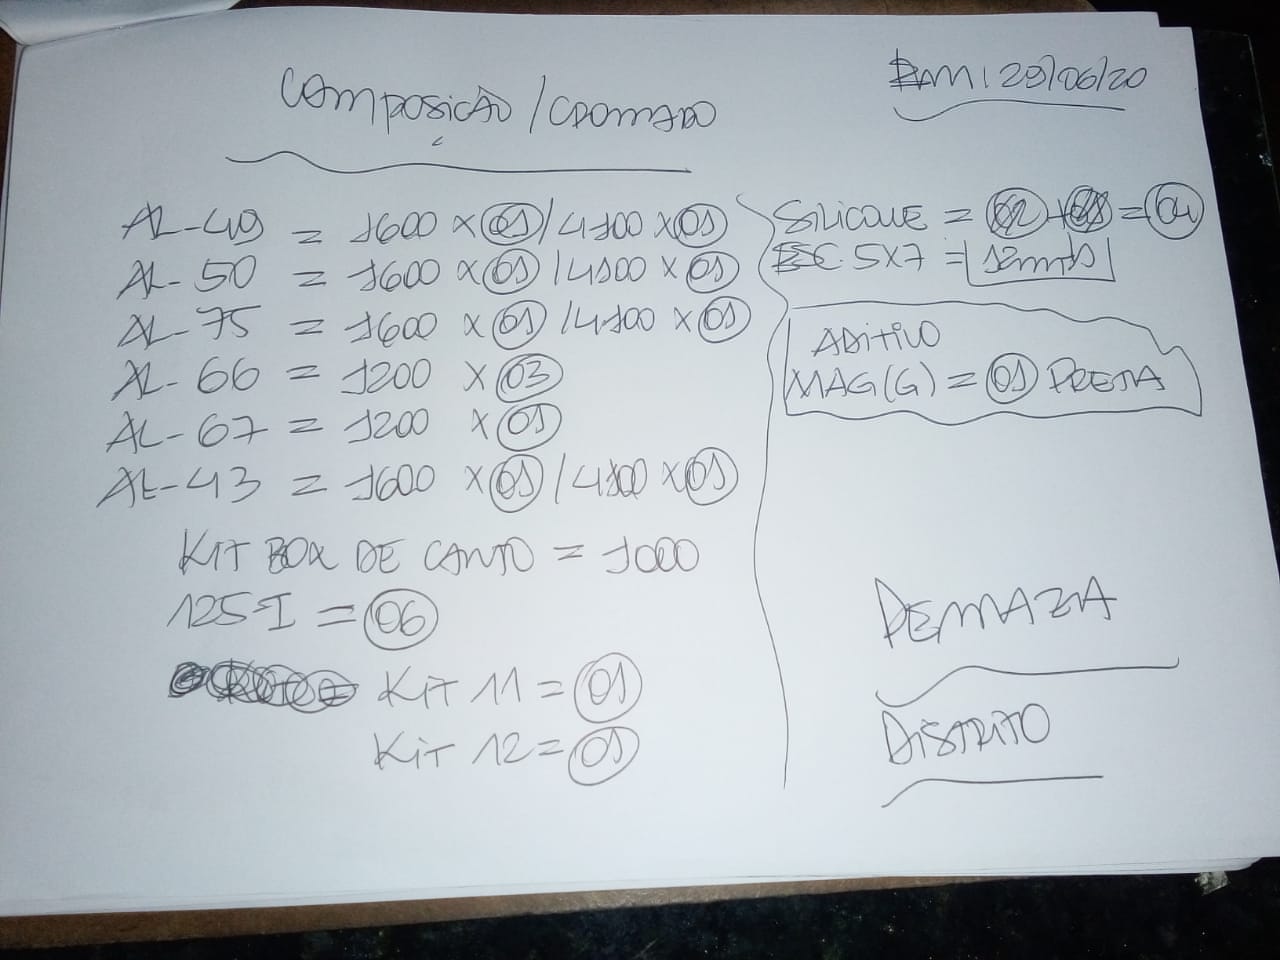 COMPOSIÇÃO / CROMADO
BAM: 29/06/20
AL-49 = 1600 x 01 / 4100 x 01
AL-50 = 1600 x 01 / 4100 x 01
AL-75 = 1600 x 01 / 4100 x 01
AL-66 = 1200 x 03
AL-67 = 1200 x 01
AL-43 = 1600 x 01 / 4100 x 01
KIT BOX DE CANTO = 1000
125-I = 06
KIT 11 = 01
KIT 12 = 01
SILICONE = = 04
ESC. 5X7 = 12mts
ADITIVO
MAG(G) = 01 PRETA
DEMAZIA
DISTRITO